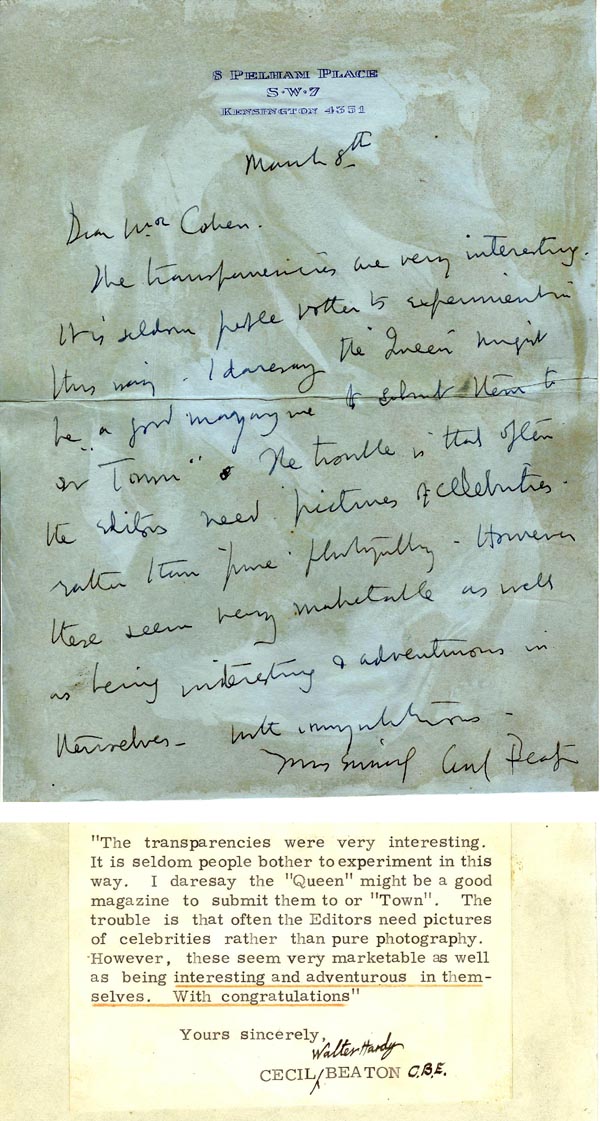 8 PELHAM PLACE
S·W·7
KENSINGTON 4331
March 8th
Dear Mr Cohen.
The transparencies are very interesting.
It is seldom people bother to experiment in
this way. I daresay the "Queen" might
be a good magazine to submit them to
or "Town". The trouble is that often
the editors need pictures of celebrities.
rather than 'pure' photography. However
these seem very marketable as well
as being interesting & adventurous in
themselves – with congratulations –
Yrs sincerely Cecil Beaton
"The transparencies were very interesting.
It is seldom people bother to experiment in this
way. I daresay the "Queen" might be a good
magazine to submit them to or "Town". The
trouble is that often the Editors need pictures
of celebrities rather than pure photography.
However, these seem very marketable as well
as being interesting and adventurous in them-
selves. With congratulations"
Yours sincerely,
Walter Hardy
CECIL/BEATON C.B.E.